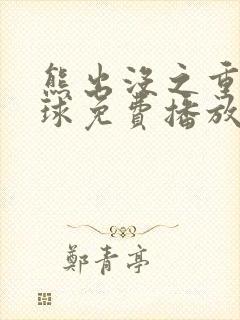 熊出没之重
球免費播放
鄭青亭